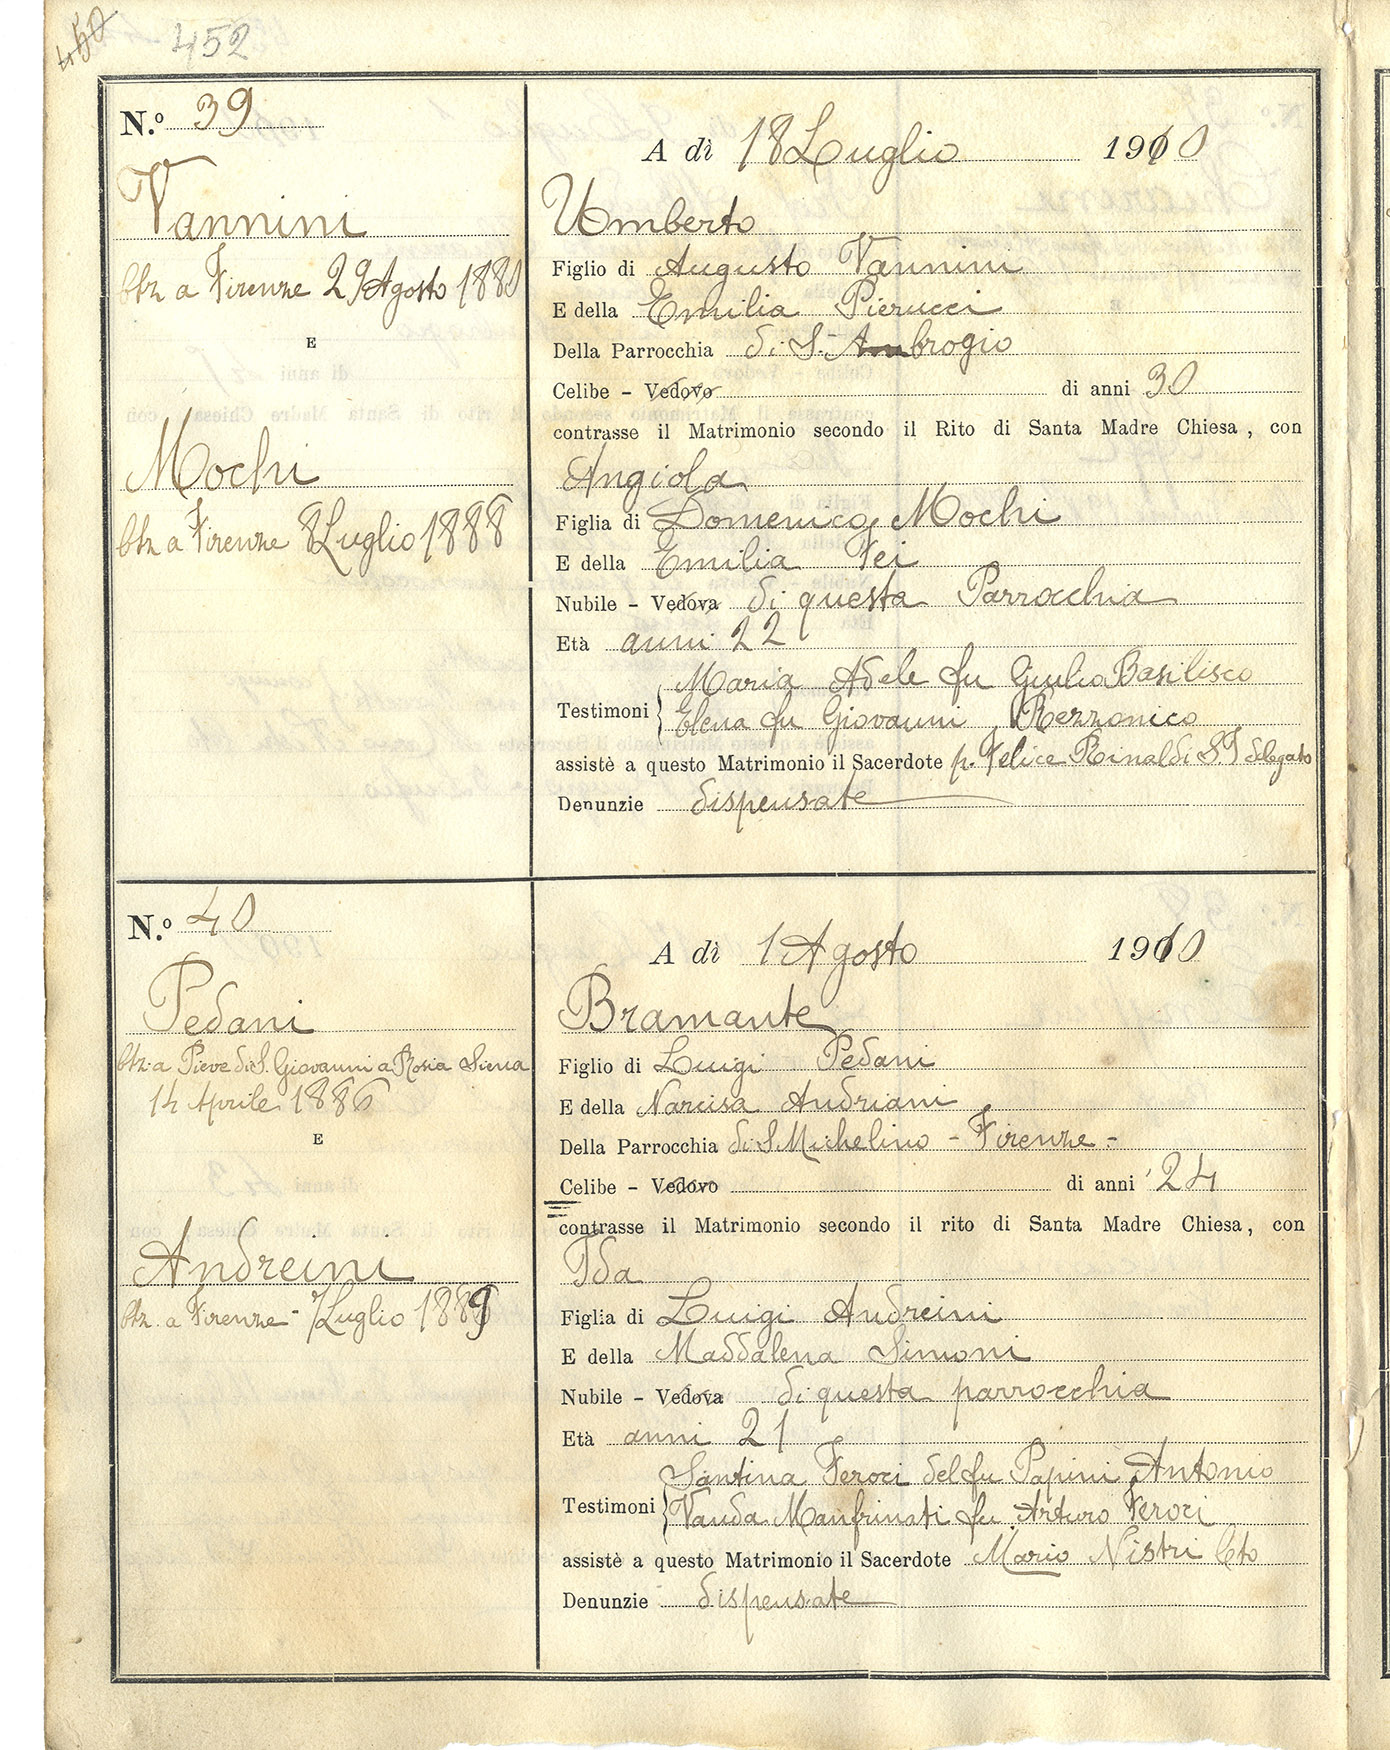 450
452
N.º 39
Vannini
btz a Firenze 29 Agosto 1880
E
Mochi
btz a Firenze 8 Luglio 1888
A dì 18 Luglio 1910
Umberto
Figlio di Augusto Vannini
E della Emilia Pierucci
Della Parrocchia di S. Ambrogio
Celibe - Vedovo di anni 30
contrasse il Matrimonio secondo il Rito di Santa Madre Chiesa, con
Angiola
Figlia di Domenico Mochi
E della Emilia Fei
Nubile - Vedova di questa Parrocchia
Età anni 22
Maria Adele fu Giulio Basilisco
Testimoni Elena fu Giovanni Rezzonico
assistè a questo Matrimonio il Sacerdote p. Felice Rinaldi S.I delegato
Denunzie dispensate
N.º 40
Pedani
btz. a Pieve di S. Giovanni a Rosia Siena
14 Aprile 1886
E
Andreini
btz. a Firenze - 7 Luglio 1889
A dì 1 Agosto 1910
Bramante
Figlio di Luigi Pedani
E della Narcisa Andriani
Della Parrocchia di S. Michelino - Firenze -
Celibe - Vedovo di anni 24
contrasse il Matrimonio secondo il rito di Santa Madre Chiesa, con
Ida
Figlia di Luigi Andreini
E della Maddalena Simoni
Nubile - Vedova di questa parrocchia
Età anni 21
Santina Feroci del fu Papini Antonio
Testimoni Vanda Manfrinati fu Arturo Feroci
assistè a questo Matrimonio il Sacerdote Mario Nistri Cto
Denunzie dispensate